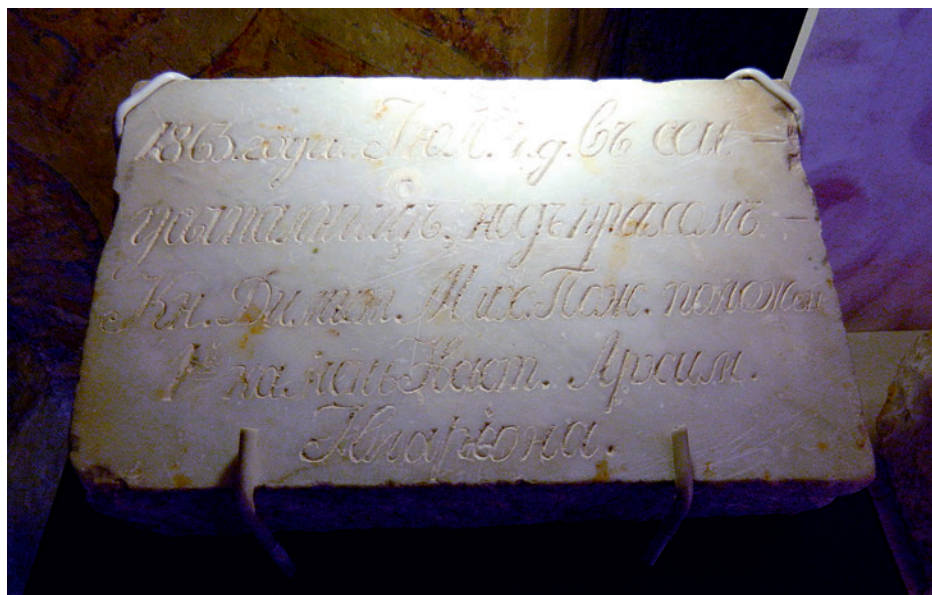 1863. года. Іюл. д. Въ сей –
усыпальницѣ, надъ прахомъ –
Кн. Димит. Мих. Пож. положен
1й камень Наст. Архим.
Иларіона.